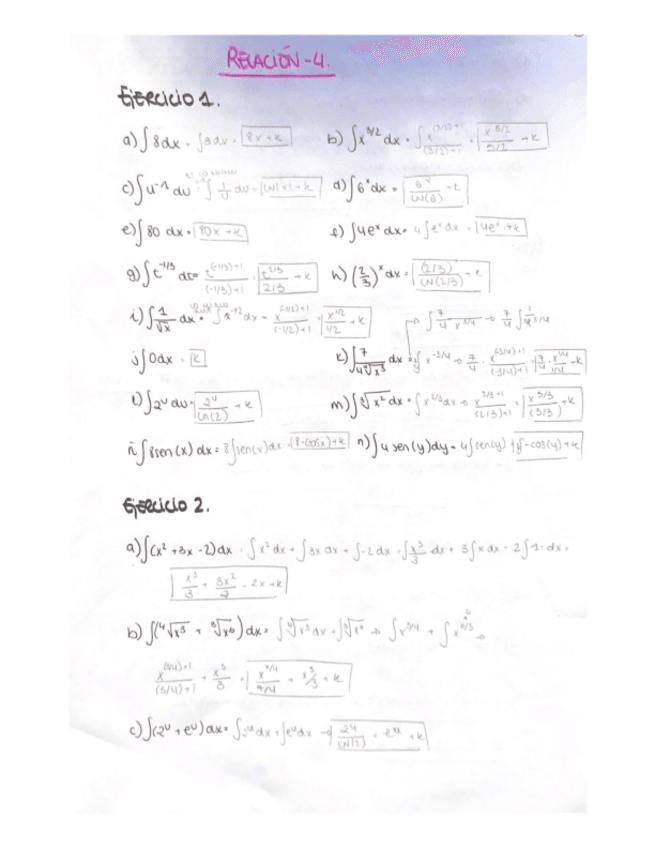 RELACIÓN-4.
Ejercicio 1.
a) ∫8dx = ∫8dx = 8x+k b) ∫x^3/2 dx = ∫ x^(3/2)+1 / (3/2)+1 = x^5/2 / 5/2 + k
c) ∫u^-1 du = ∫ 1/u du = ln|x|+k d) ∫6^x dx = 6^x / ln(6) + k
e) ∫80 dx = 80x+k f) ∫4e^x dx = 4∫e^x dx = 4e^x+k
g) ∫t^-1/3 dt = t^(-1/3)+1 / (-1/3)+1 = t^2/3 / 2/3 + k h) ∫(2/3)^x dx = (2/3) / ln(2/3) + k
i) ∫ 1/√x dx = ∫x^-1/2 dx = x^(-1/2)+1 / (-1/2)+1 = x^1/2 / 1/2 + k
j) ∫0dx = k k) ∫ 7 / 4 ∜x^3 dx = x^-3/4 → 7/4 · x^(-3/4)+1 / (-3/4)+1 = 7/4 · x^1/4 / 1/4 + k
l) ∫2^u du = 2^u / ln(2) + k m) ∫ ∛x^2 dx = ∫x^2/3 dx → x^2/3+1 / (2/3)+1 = x^5/3 / (5/3) + k
ñ) ∫8sen(x) dx = 8∫sen(x)dx = 8·(-cosx)+k n) ∫4 sen(y)dy = 4∫sen(y) -cos(y)+k
Ejercicio 2.
a) ∫(x^2 +3x -2)dx = ∫x^2 dx + ∫3x dx + ∫-2dx = ∫ x^3/3 dx + 3∫x dx - 2∫1·dx =
x^3/3 + 3x^2/2 - 2x+k
b) ∫(∜x^3 + ∛x^6) dx = ∫∜x^3 dx + ∫∛x^6 → ∫x^3/4 + ∫x^6/3 →
x^(3/4)+1 / (3/4)+1 + x^3/3 = x^7/4 / 7/4 + x^3/3 + k
c) ∫(2^u + e^u)dx = ∫2^u dx + ∫e^u dx → 2^u / ln(2) + e^u + k